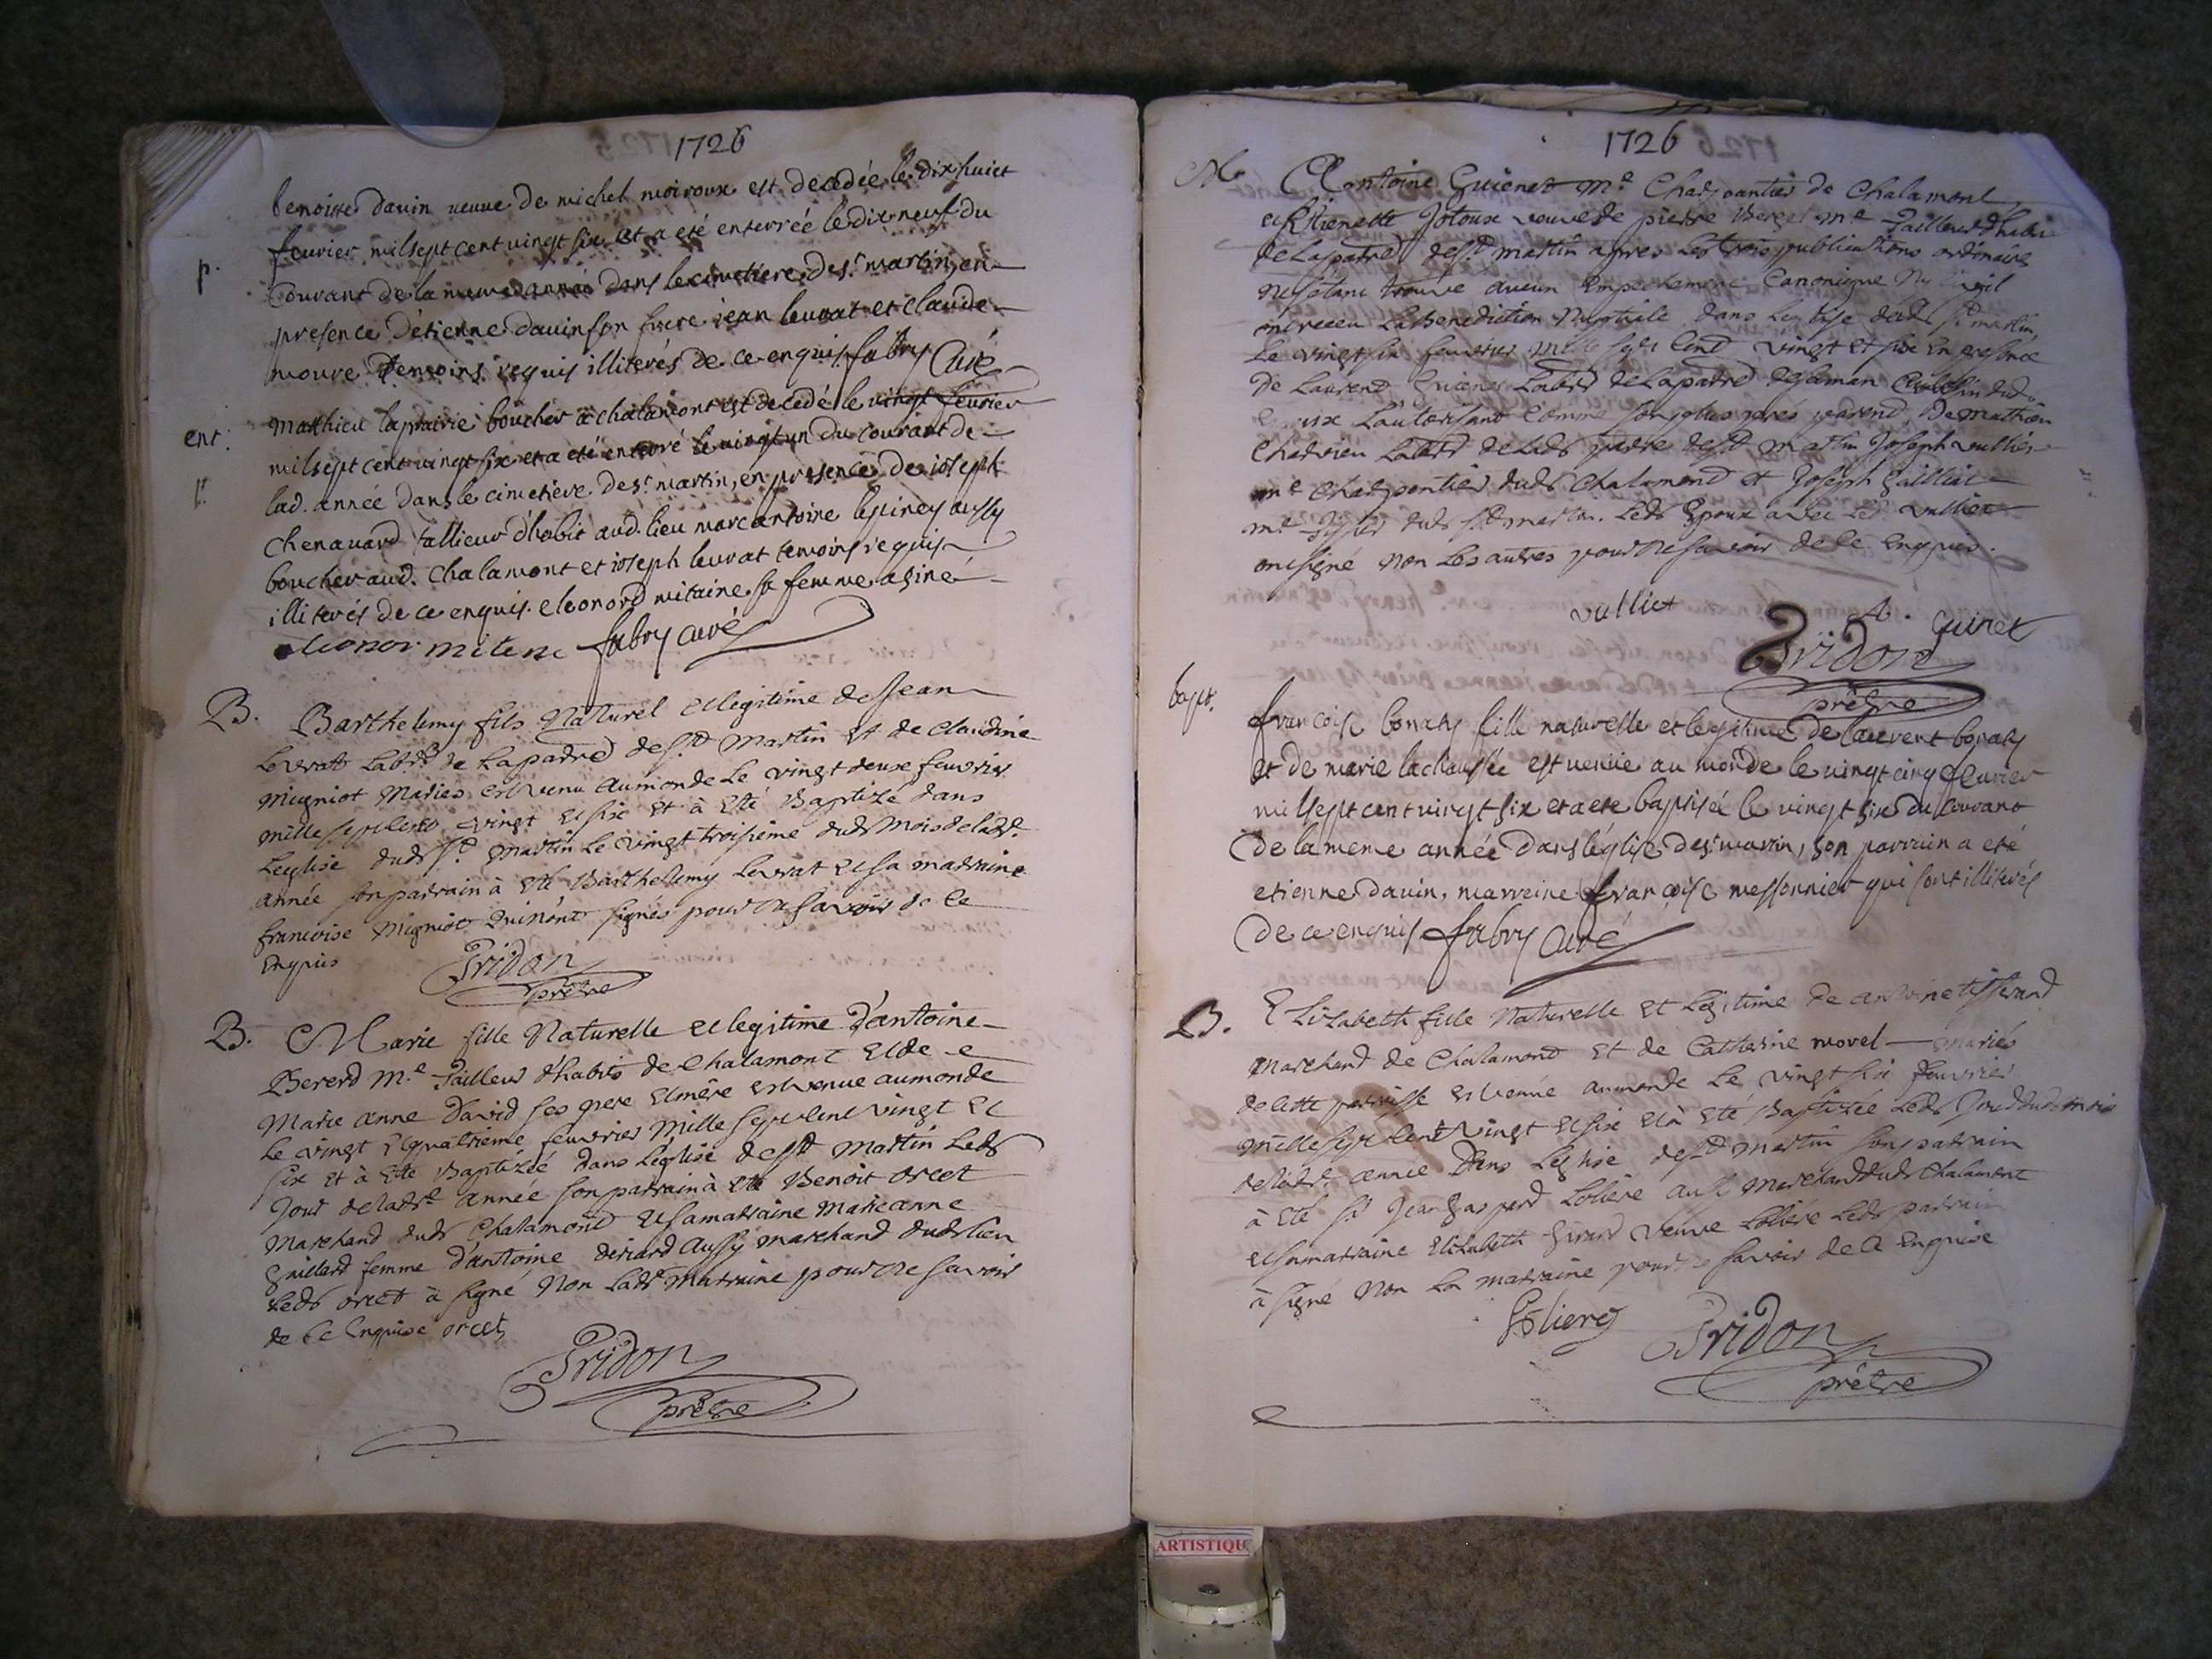 1726
benoiste davin veuve de michel moiroux est decedée le dix huict
feuvrier milsept cent vingt six et a eté enterrée le dix neuf du
p.
Courant de la meme année dans le cimetiere de st martin en
presence d'étienne davin son frere jean leuvat et claude
moure temoins requis illiterés de ce enquis fabry Curé
ent.
mathieu laprairie boucher a chalamont est decedé le vingt feuvrier
milsept cent vingt six et a eté enterré le vingt un du courant de
p.
lad. année dans le cimetiere de st martin, en presence de ioseph
chenavard tallieur d'habit aud. lieu marc antoine lepiney aussy
boucher aud. Chalamont et ioseph leuvat temoins requis
illiterés de ce enquis. eleonord mitaine sa femme a siné
leonor mitene fabry curé
B.
Barthelemy fils Naturel et legitime de Jean
Levrat Labr. de Laparre de st Martin et de Claudine
Migniot Mariés est venu aumonde Le vingt deuxe feuvrier
mille sept cent vingt et six et à Eté Baptizé dans
Leglise dud st Martin Le vingt troisieme dud mois de lad
année son parrain à Eté Barthellemy Levrat et sa marraine
francoise Migniot qui n'ont signés pour ne savoir de ce
Enquis
Pridon
prêtre
B.
Marie fille Naturelle et legitime d'antoine
Bererd Me Tailleur d'habits de Chalamont et de
Marie anne David ses pere et mère est venue aumonde
Le vingt et quatrième feuvrier mille sept cent vingt et
six et à Eté Baptizéé dans Leglise de st Martin Led
Jour de lad année son parrain à Eté Benoit orcet
Marchand dud Chalamond et sa marraine Marie anne
Guillerd femme d'antoine deriard aussy marchand dud lieu
Led orcet à signé Non Lad marraine pour ne savoir
de Ce Enquise orcet
Pridon
prêtre
1726
M
Antoine Guienet Me Charpantier de Chalamont
et Etienette Joloux veuve de pierre Me Tailleur d'habi
de Laparre de st martin apres Les trois publications ordinaires
ne s'étant trouvé aucun Empechement Canonique Ny Civil
ont receu La Benediction Nuptiale dans Leglise dud st martin
Le vingt six feuvrier mille sept Cent vingt et six En presence
De Laurent Guienet Labrd de Laparre
L'autorisant Comme son plus près parend, De Mathieu
Labrd de Lad parre de st Martin Joseph vullier
me Charpentier dud Chalamond et Joseph Gailliat
me dud st martin. Led Epoux avec Led vulliet
ont signé Non Les autres pour ne savoir de Ce Enquis.
vulliet
A. Guinet
Pridon
prêtre
bapt.
francoise bonaty fille naturelle et legitime de laurent bonaty
et de marie lachaussée est venüe au monde le vingt cinq feuvrier
mil sept cent vingt six et a ete baptisée le vingt six du Courant
De la meme année dans l'église de st martin, son parrain a eté
etienne davin, marreine francoise messonnier qui sont illiterés
De ce enquis fabry Curé
B.
Elizabeth fille Naturelle et Legitime de antoine tisserand
Marchand de Chalamond et de Catherine morel mariés
de cette parroisse est venüe aumonde Le vingt six feuvrier
mille sept Cent vingt et six et à Eté Baptizée Led Jour dud mois
de lad année Dans Leglise de st martin son parrain
à Eté sr Jean Gaspard Loliere aussy Marchand dud Chalamont
et sa marraine Elizabeth Girard veuve Loliere Led parrain
à signé Non La marraine pour ne savoir de Ce Enquise
Loliere
Pridon
prêtre
ARTISTIQU